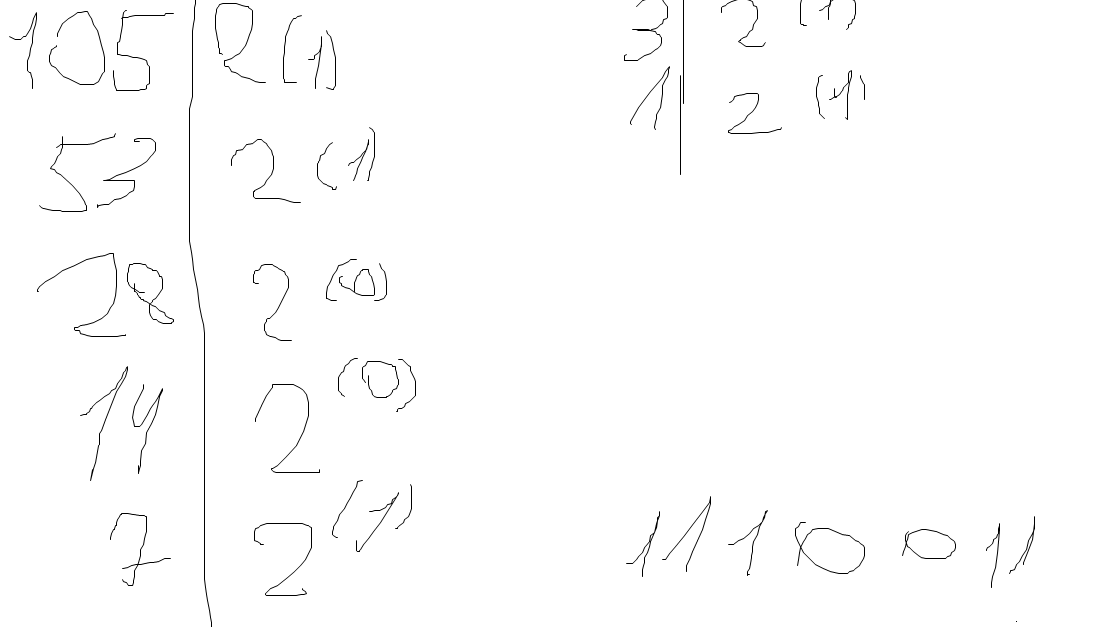 105 | 2 (1)
53 | 2 (1
28 | 2 (0)
14 | 2 (0)
7 | 2 (1)
3 | 2 (1)
1 | 2 (1)
1110011